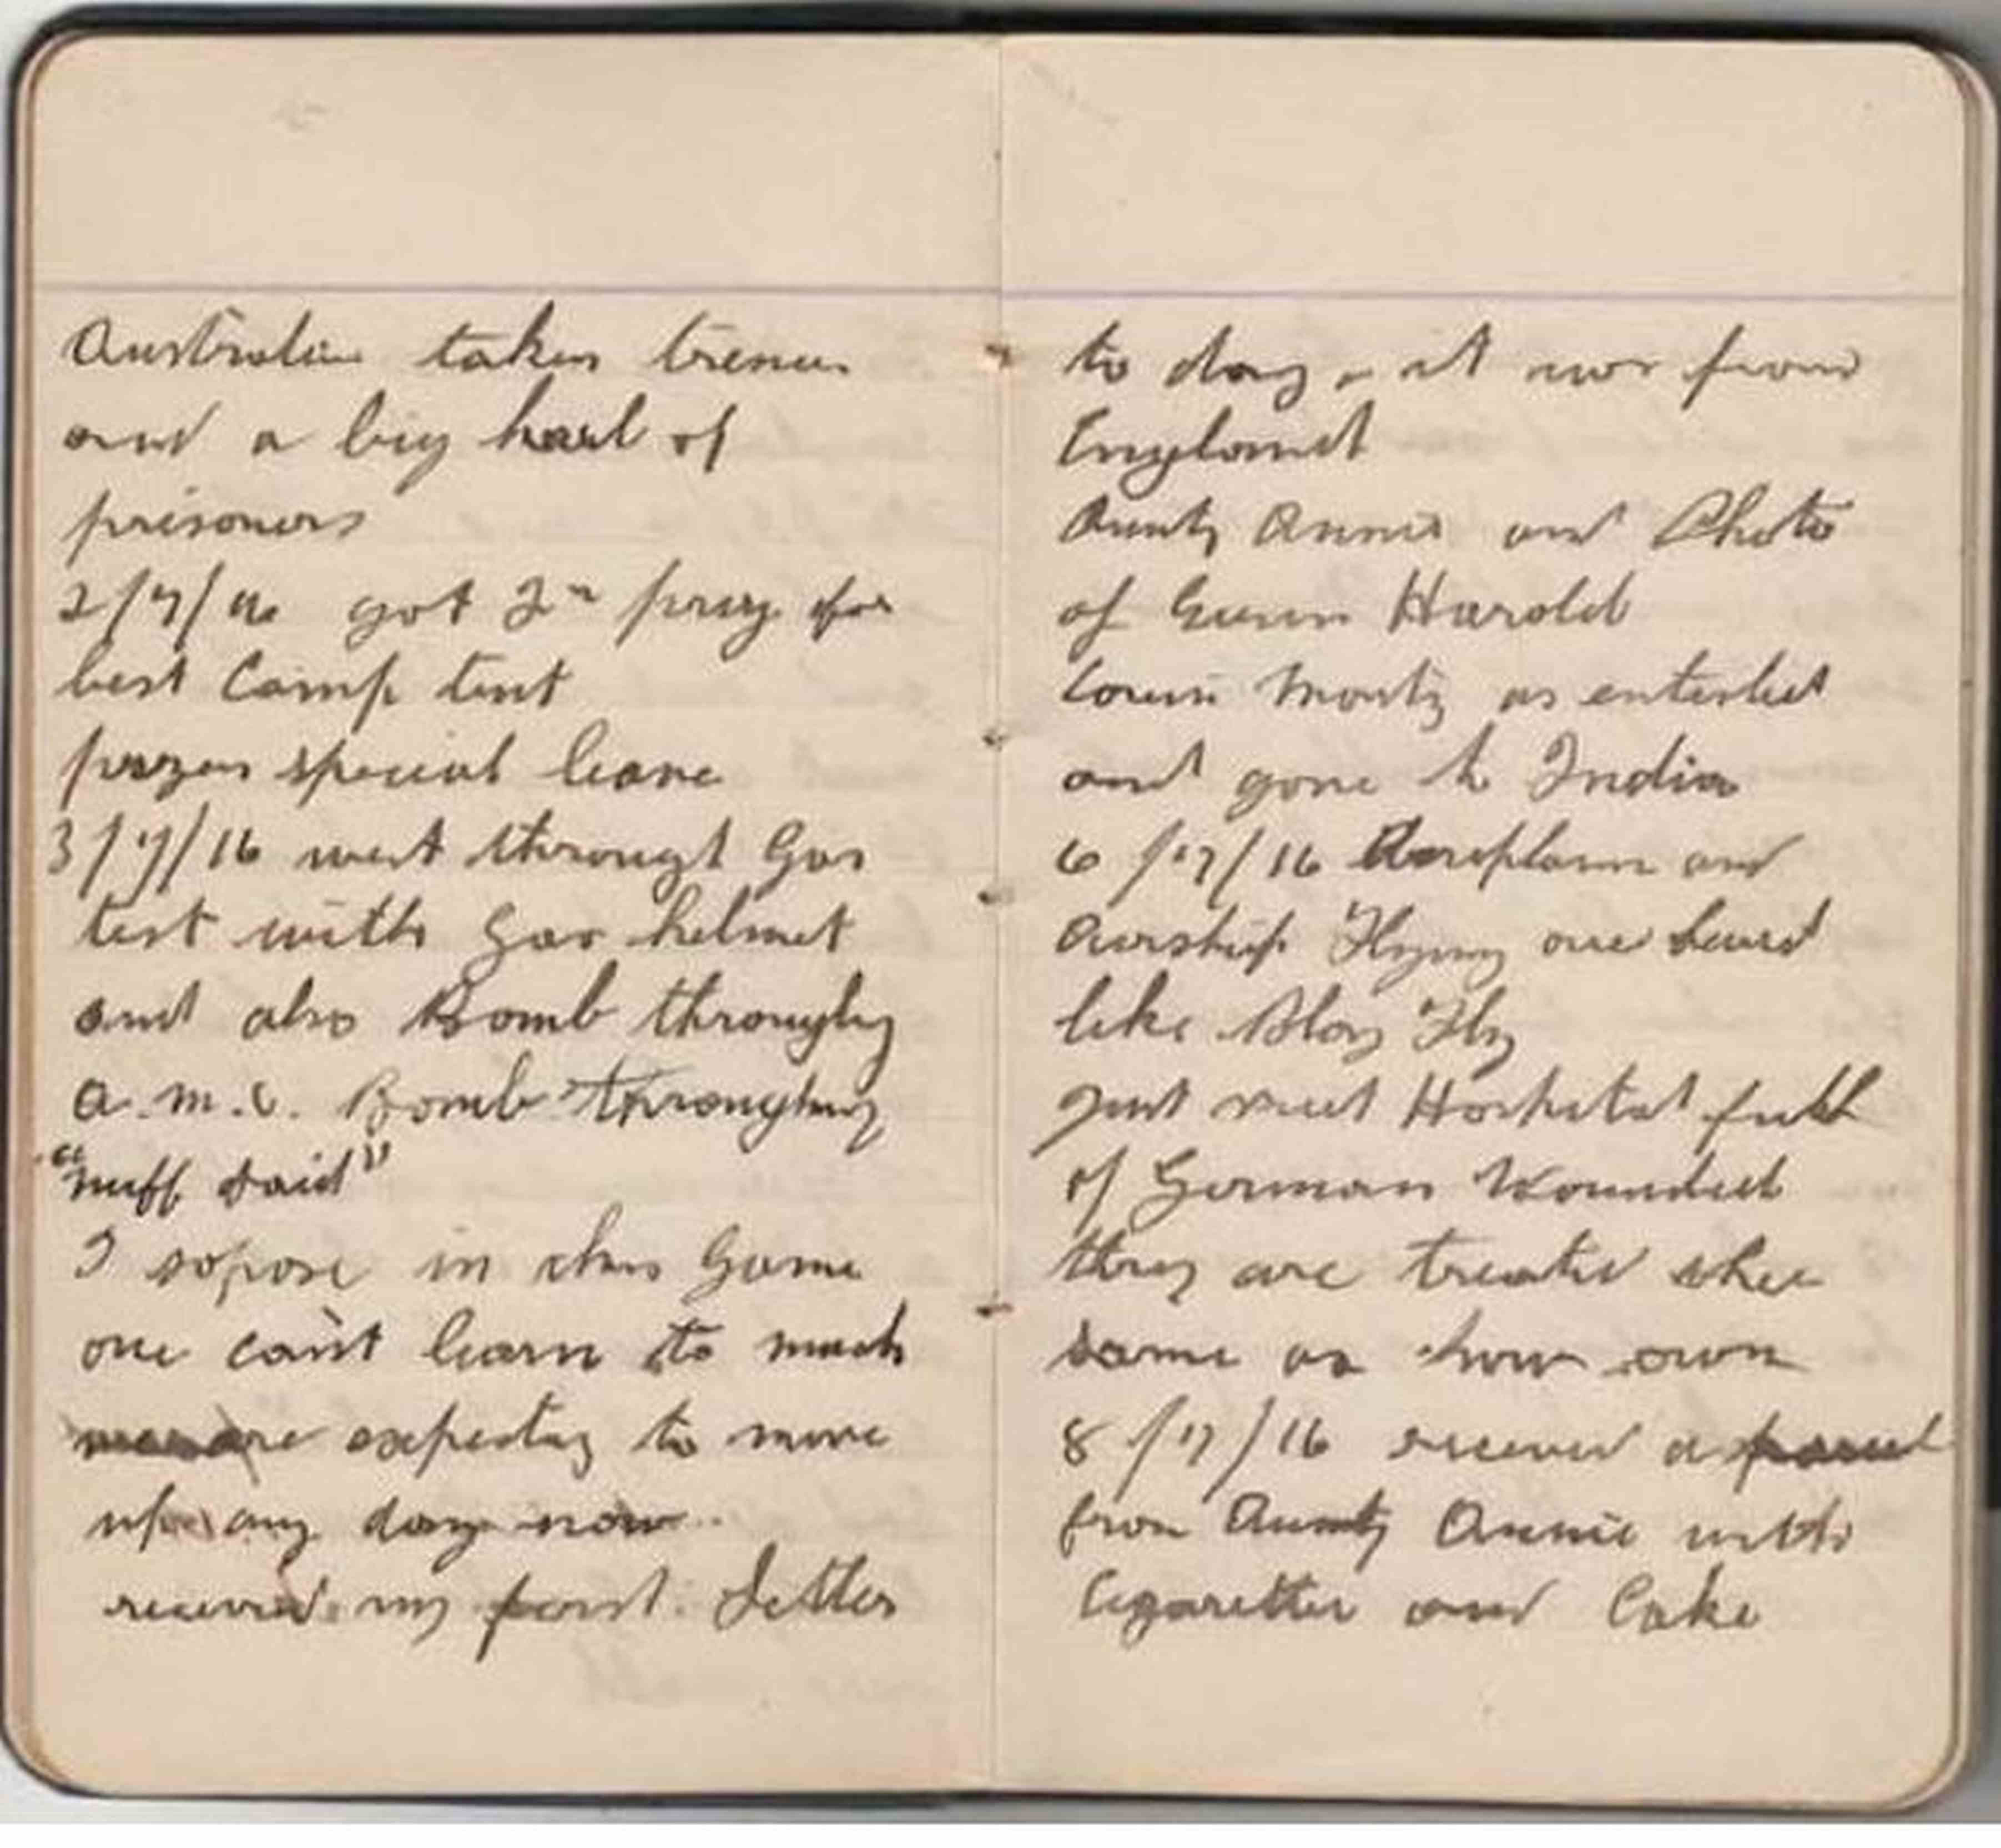 Australian takes trenches
and a big haul of
prisoners
2/7/16 got 2n prize for
best Camp tent
prizes special leave
3/7/16 went through Gas
test with Gas helmet
and also Bomb throughing
A.M.C. Bomb throughing
"nuff said"
I sopose in this Game
one can't learn to much
are expecting to move
up any day now
received my first Letter
to day, it was from
England
Aunty Annie and Photo
of Harold
Cousin Monty as enterled
and gone to India
6/7/16 Aeroplane and
Airship Flying over head
like Blow Fly
Just next Hospital full
of German Wounded
they are treated the
same as how own
8/7/16 received a parcel
from Aunty Annie with
Cigarettes and Cake